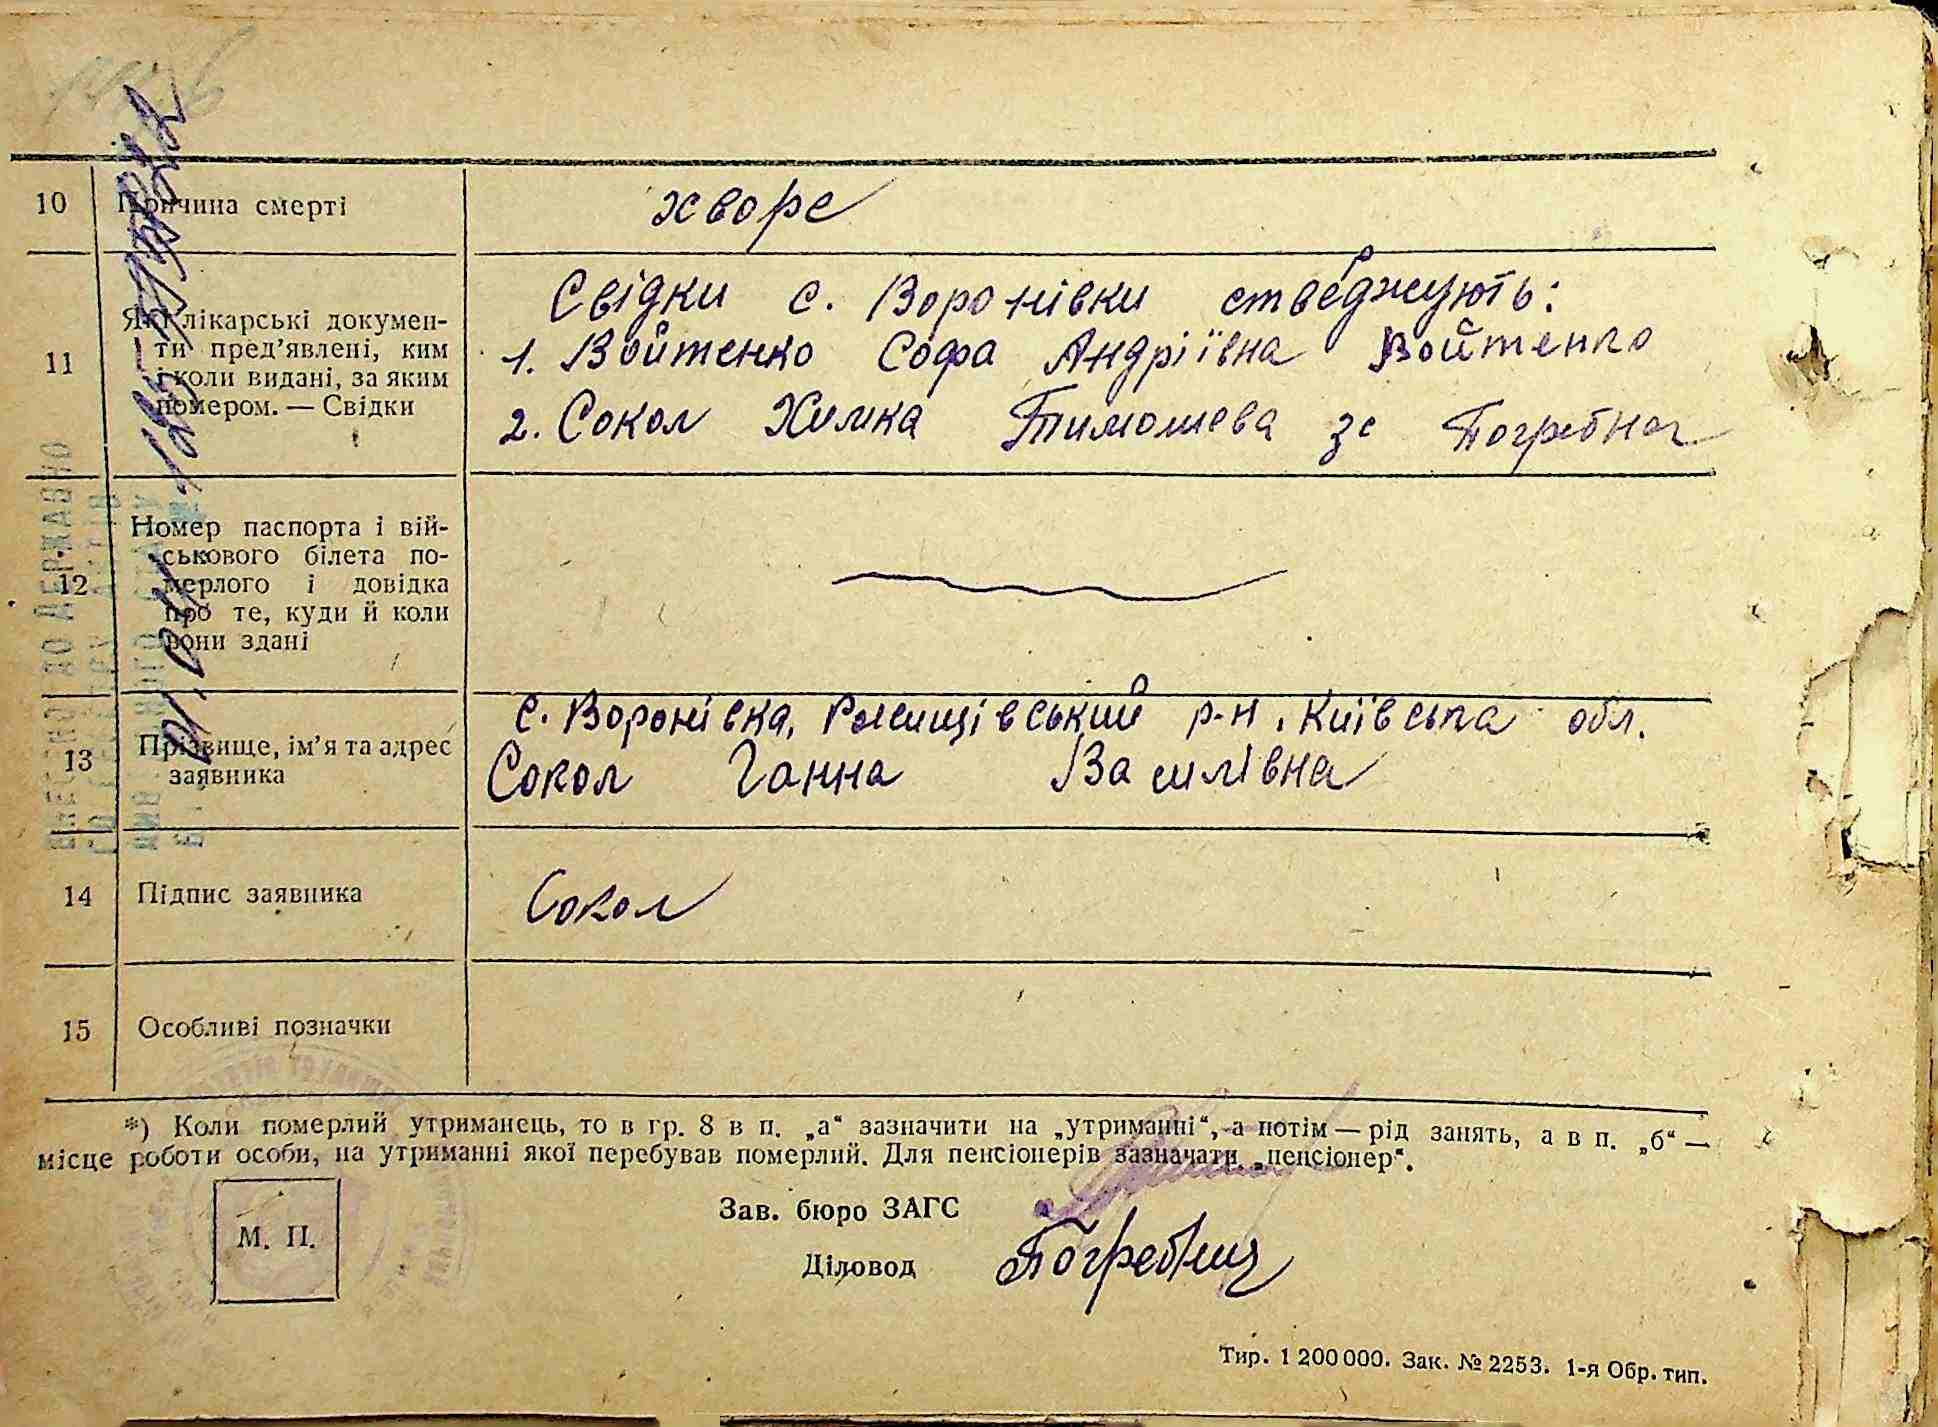 10 Причина смерті хворе
11 Які лікарські докумен-
ти пред’явлені, ким
і коли видані, за яким
номером. — Свідки
Свідки с. Воронівки стведжують:
1. Войтенко Софа Андріївна Войтенко
2. Сокол Химка Тимошева за Погребна
12 Номер паспорта і вій-
ськового білета по-
мерлого і довідка
про те, куди й коли
вони здані
13 Прізвище, ім’я та адрес
заявника
с. Воронівка, Ржищівський р-н. Київська обл.
Сокол Ганна Василівна
14 Підпис заявника Сокол
15 Особливі позначки
*) Коли померлий утриманець, то в гр. 8 в п. „а“ зазначити на „утриманні“, а потім — рід занять, а в п. „б“ —
місце роботи особи, на утриманні якої перебував померлий. Для пенсіонерів зазначати „пенсіонер“.
Зав. бюро ЗАГС
М. П.
Діловод
Тир. 1 200 000. Зак. № 2253. 1-я Обр. тип.